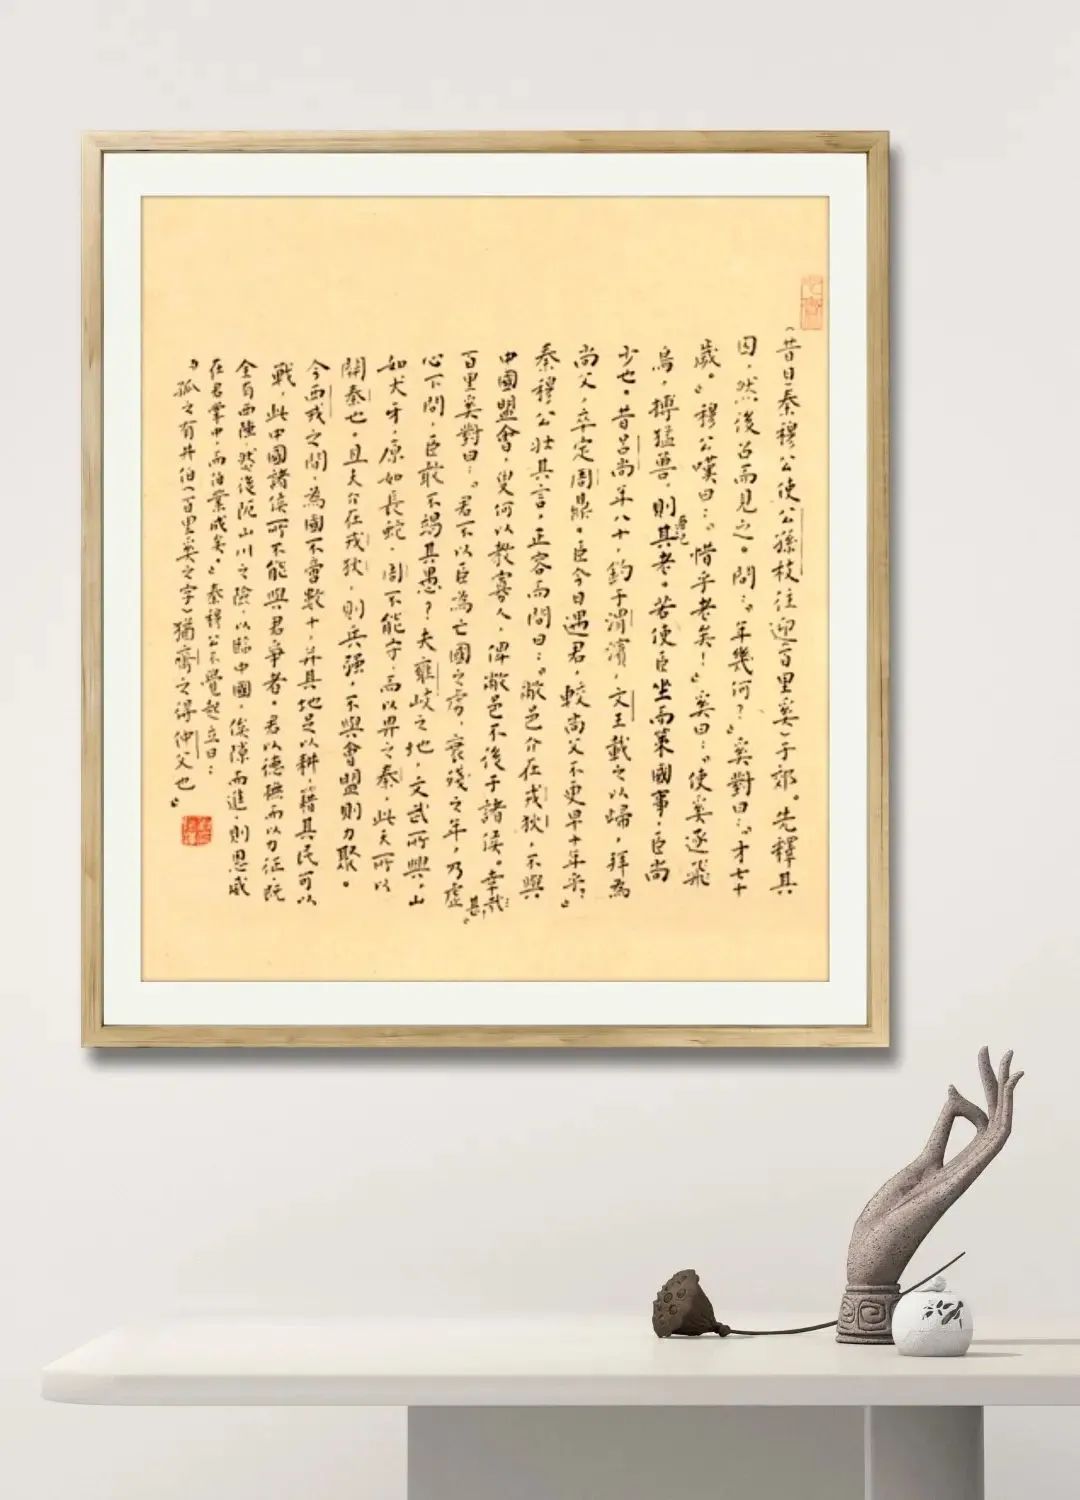 (昔日)秦穆公使公孫枝往迎(百里奚)于郊。先釋其
囚,然後召而見之。問:“年幾何?”奚對曰:“才七十
歲。”穆公嘆曰:“惜乎老矣!”奚曰:“使奚逐飛
鳥,搏猛獸,則其老。若使臣坐而策國事,臣尚
少也。昔呂尚年八十,釣于渭濱,文王載之以歸,拜為
尚父,卒定周鼎。臣今日遇君,較尚父不更早十年乎?”
秦穆公壯其言,正容而問曰:“敝邑介在戎狄,不與
中國盟會,叟何以教寡人,俾敝邑不後于諸侯。幸甚
百里奚對曰:“君不以臣為亡國之虜,衰殘之年,乃虛
心下問,臣敢不竭其愚?夫雍岐之地,文武所興,山
如犬牙,原如長蛇,周不能守,而以畀之秦,此天所以
開秦也。且夫介在戎狄,則兵強,不與會盟則力聚。
今西戎之間,為國不啻數十,并其地足以耕,籍其民可以
戰,此中國諸侯所不能與君爭者。君以德撫而以力征,既
全有西陲,然後阨山川之險,以臨中國,俟隙而進,則恩威
在君掌中,而伯業成矣。”秦穆公不覺起立曰:
“孤之有井伯(百里奚之字)猶齊之得仲父也。”